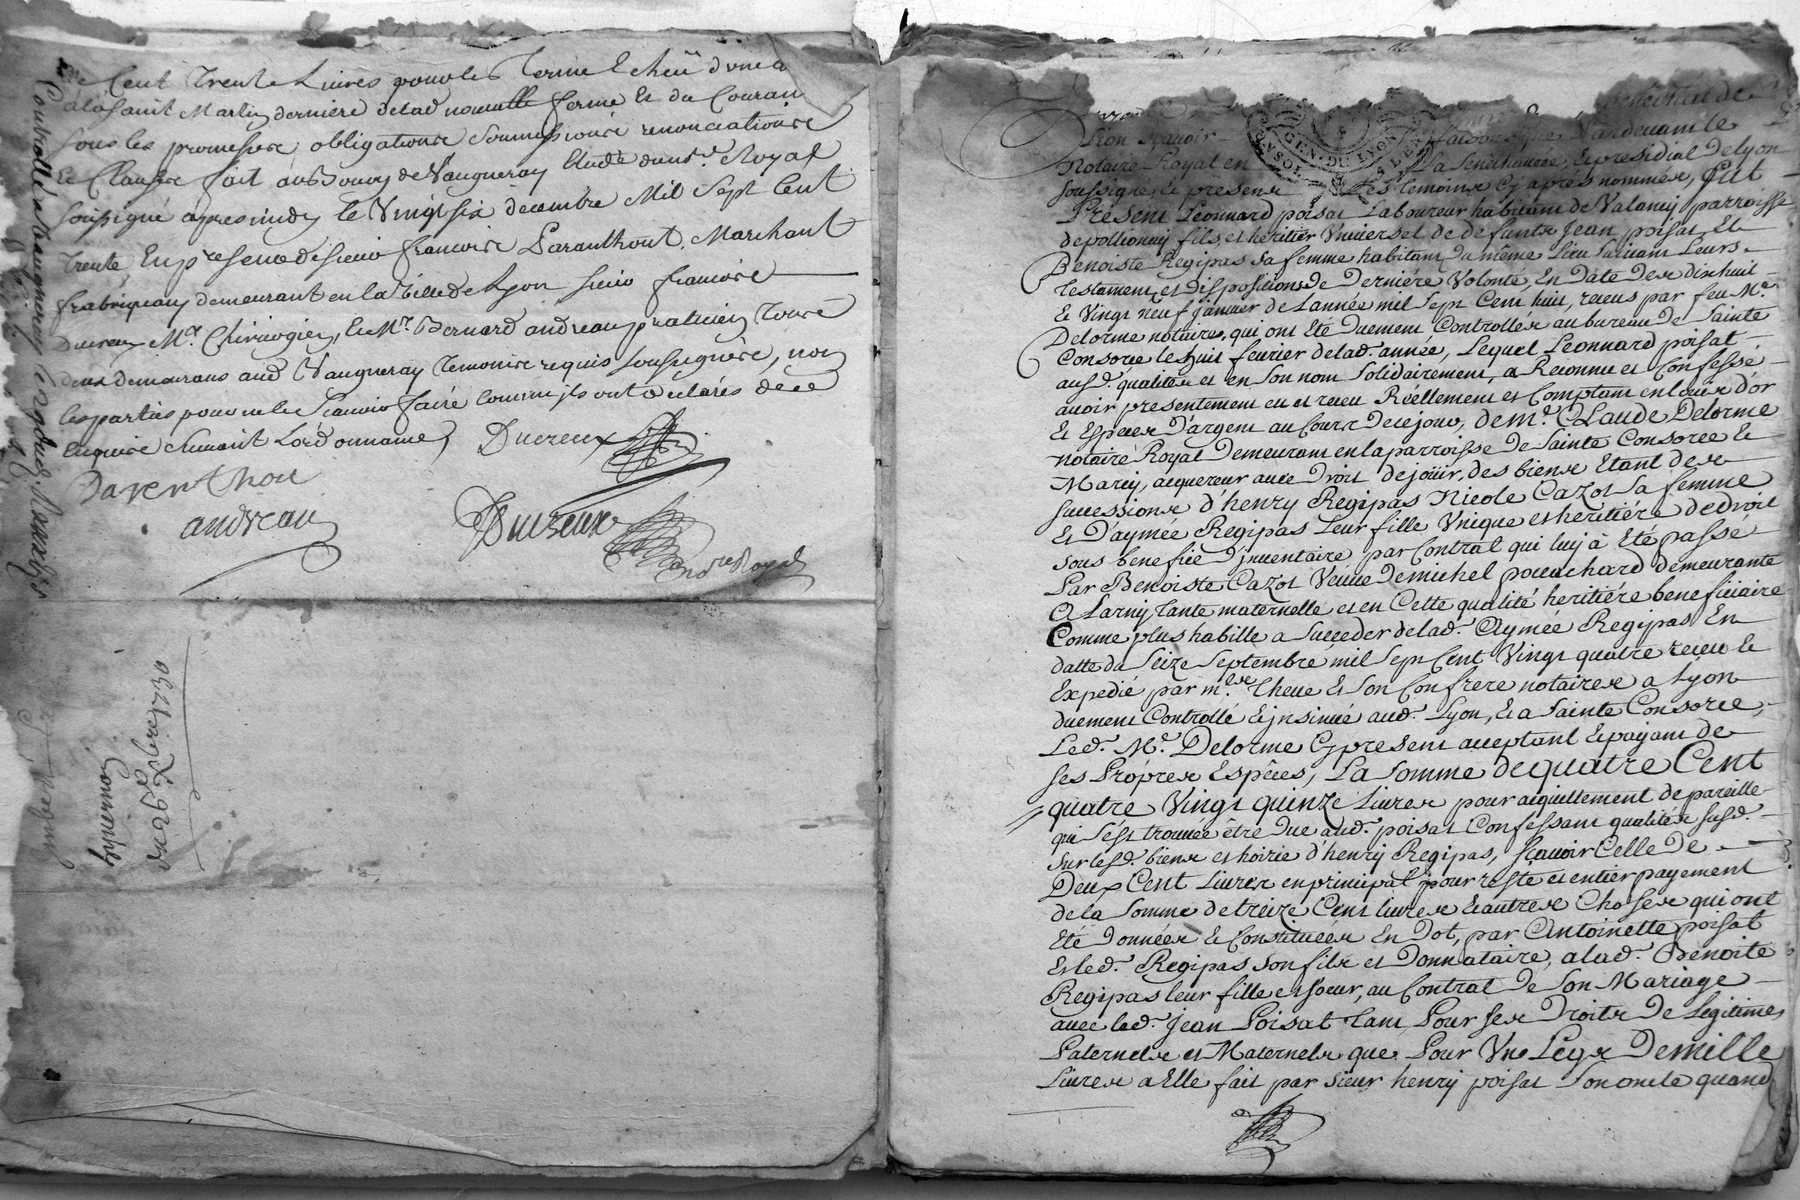 Cent Trente Livres pour le Terme Echeu
a la saint Martin derniere de lad. nouvelle ferme Et du Couran
sous les promesses, obligations soumissions renonciations
Et Clauses fait au Bourg de Vaugneray Etude dud. No.re Royal
soussigné apres midy le Vingt six decembre Mil Sept Cent
Trente, En presence de sieur françois Paranthout, Marchant
frabriquan demeurant en la Ville de Lyon sieur françois
Ducreux M.e Chirurgien, Et Mr. Bernard andreau praticien Tous
deux demeurans aud. Vaugneray Temoins requis soussignés, non
les parties pour ne le scavoir faire comm'ils ont declarés de ce
Enquis suivant L'ordonnance
Ducreux
Parenthou
andreau
Ducreux
no.re Royal
Controllé a Vaugneray
hypernod
du 26 Xbre 1730
scavoir
Pardevant le
Notaire Royal en La Senechaussée, Et presidial De Lyon
soussigné, Et presens Les temoins Cy aprés nommés, fut
Present Leonnard poisat Laboureur habitant de Valancy parroisse
de pollionnay fils, et heritier Universel de defunts Jean poisat Et
Benoiste Regipas sa femme habitans du même Lieu suivant Leurs
Testament et dispositions de Derniére Volonté, En Date des dixhuit
Et Vingt neuf janvier de L'année mil sept Cent huit, receus par feu M.e
Delorme notaire, qui ont Eté Duement Controllés au bureau de Sainte
Consorce le huit fevrier de lad. année, Lequel Leonnard poisat
ausd. qualités et en son nom solidairement, a Reconnu et Confessé
avoir presentement eu et receu Réellement et Comptant en Louis d'or
Et Especes D'argent au Cours de ce jour, de M.e CLaude Delorme
notaire Royal Demeurant en la parroisse de Sainte Consorce Et
Marcy, acquereur avec Droit de joüir, des biens Etant des
successions d'henry Regipas Nicole Cazot sa femme
Et D'aymée Regipas Leur fille Unique et heritiére de droit
sous benefice D'inventaire par Contrat qui luy à Eté passé
Par Benoiste Cazot Veuve De michel pouachard demeurante
a Larny Tante maternelle et en Cette qualité heritiére beneficiaire
Comme plus habille a succeder de lad. Aymée Regipas En
datte du Seize Septembre mil sept Cent Vingt quatre receu Et
Expedié par m.es Theve Et son Confrere notaires a Lyon
duement Controllé Et jnsinué aud. Lyon, Et a Sainte Consorce,
Led. M.e Delorme Cy present acceptant Et payant de
ses Propres Espéces, La somme de quatre Cent
quatre Vingt quinze Livres pour aquittement de pareille
qui s'est trouvée être Due aud. poisat Confessant qualités susd.
sur lesd. biens et hoirie d'henry Regipas, scavoir Celle De
Deux Cent Livres en principal pour reste et entier payement
de la somme de treize Cent livres Et autres Choses qui ont
Eté Données Et Constituées En Dot, par Antoinette poisat
Et led. Regipas son fils et Donnataire, a lad. Benoite
Regipas leur fille et soeur, au Contrat de son Mariage
avec led. Jean Poisat Tant Pour ses Droits De Legitimes
Paternels et Maternels que Pour Un Legs De mille
Livres a Elle fait par sieur henry poisat son oncle quand